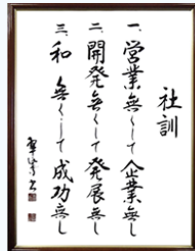 社訓
一、営業無くして企業無し
二、開発無くして発展無し
三、和 無くして成功無し